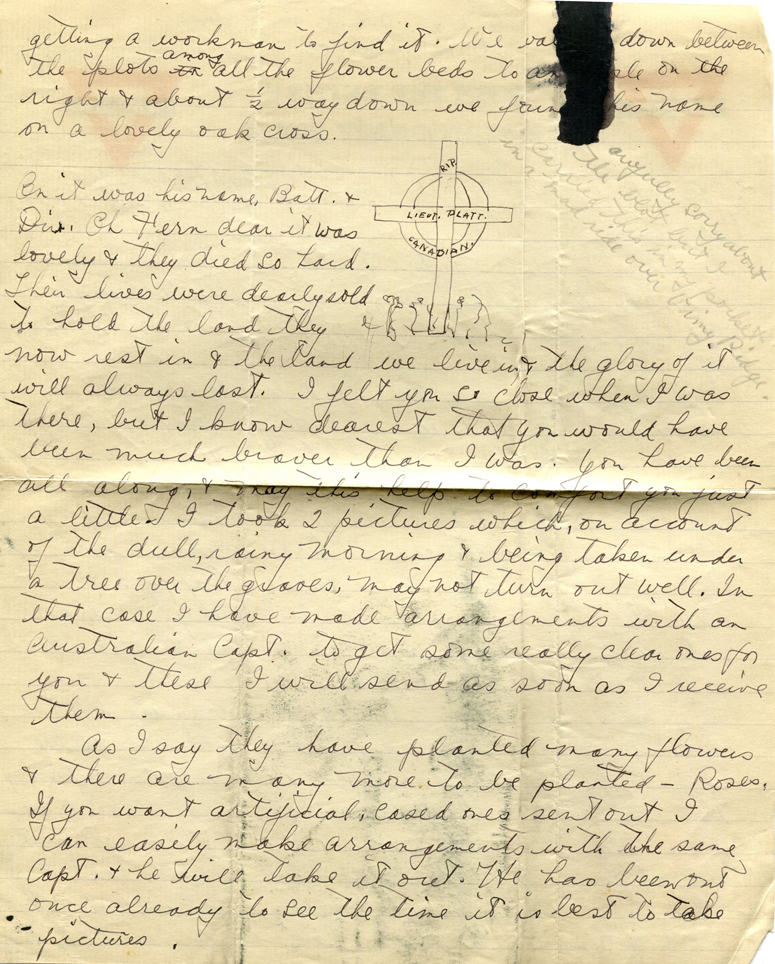 getting a workman to find it. We down between
the plots among all the flower beds to an on the
right & about ½ way down we his name
on a lovely oak cross.
R.I.P.
LIEUT. PLATT.
CANADIAN.
awfully sorry about
the blot but I
carried this in my
in a mad ride over Vimy Ridge.
On it was his name, Batt. &
Div. Oh Fern dear it was
lovely & they died so hard.
Their lives were dearly sold
to hold the land they
now rest in & the land we live in & the glory of it
will always last. I felt you so close when I was
there, but I know dearest that you would have
been much braver than I was. You have been
all along, & may this help to comfort you just
a little. I took 2 pictures which, on account
of the dull, rainy morning & being taken under
a tree over the graves, may not turn out well. In
that case I have made arrangements with an
Australian Capt. to get some really clear ones for
you & these I will send as soon as I receive
them.
As I say they have planted many flowers
& there are many more to be planted – Roses.
If you want artificial, cased ones sent out I
can easily make arrangements with the same
Capt. & he will take it out. He has been out
once already to see the time it is best to take
pictures.